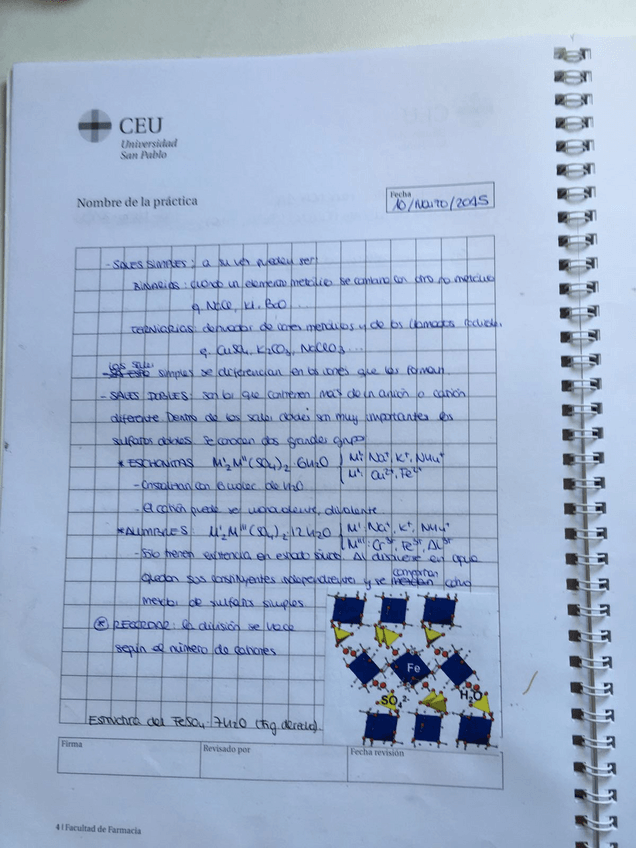 CEU
Universidad
San Pablo
Nombre de la práctica
Fecha
10/MARZO/2015
- SALES SIMPLES: a su vez pueden ser:
BINARIAS: cuando un elemento metálico se combina con otro no metálico
ej. NaCl, KI, BaO ...
TERNIARIAS: derivados de iones metálicos y de los llamados
ej. CuSO4, K2CO3, NaClO3...
Las sales simples se diferencian en los iones que las forman.
- SALES DOBLES: son las que contienen más de un anión o catión
diferente. Dentro de las sales dobles son muy importantes los
sulfatos dobles. Se conocen dos grandes grupos
* ESCHONITAS M'2M''(SO4)2 6H2O { M': Na+, K+, NH4+
M'': Cu2+, Fe2+
- Cristalizan con 6 molec de H2O
- El catión puede ser monovalente, divalente
* ALUMBRES: M'2M'''(SO4)2 12H2O { M': Na+, K+, NH4+
M''': Cr3+, Fe3+, Al3+
- Sólo tienen existencia en estado sólido. Al disolverse en agua
quedan sus constituyentes independientes y se comportan como
mezclas de sulfatos simples
* RECORDAR: la división se hace
según el número de cationes
Fe
SO4 2-
H2O
Estructura del FeSO4·7H2O (Fig. derecha).
Firma
Revisado por
Fecha revisión
4 | Facultad de Farmacia